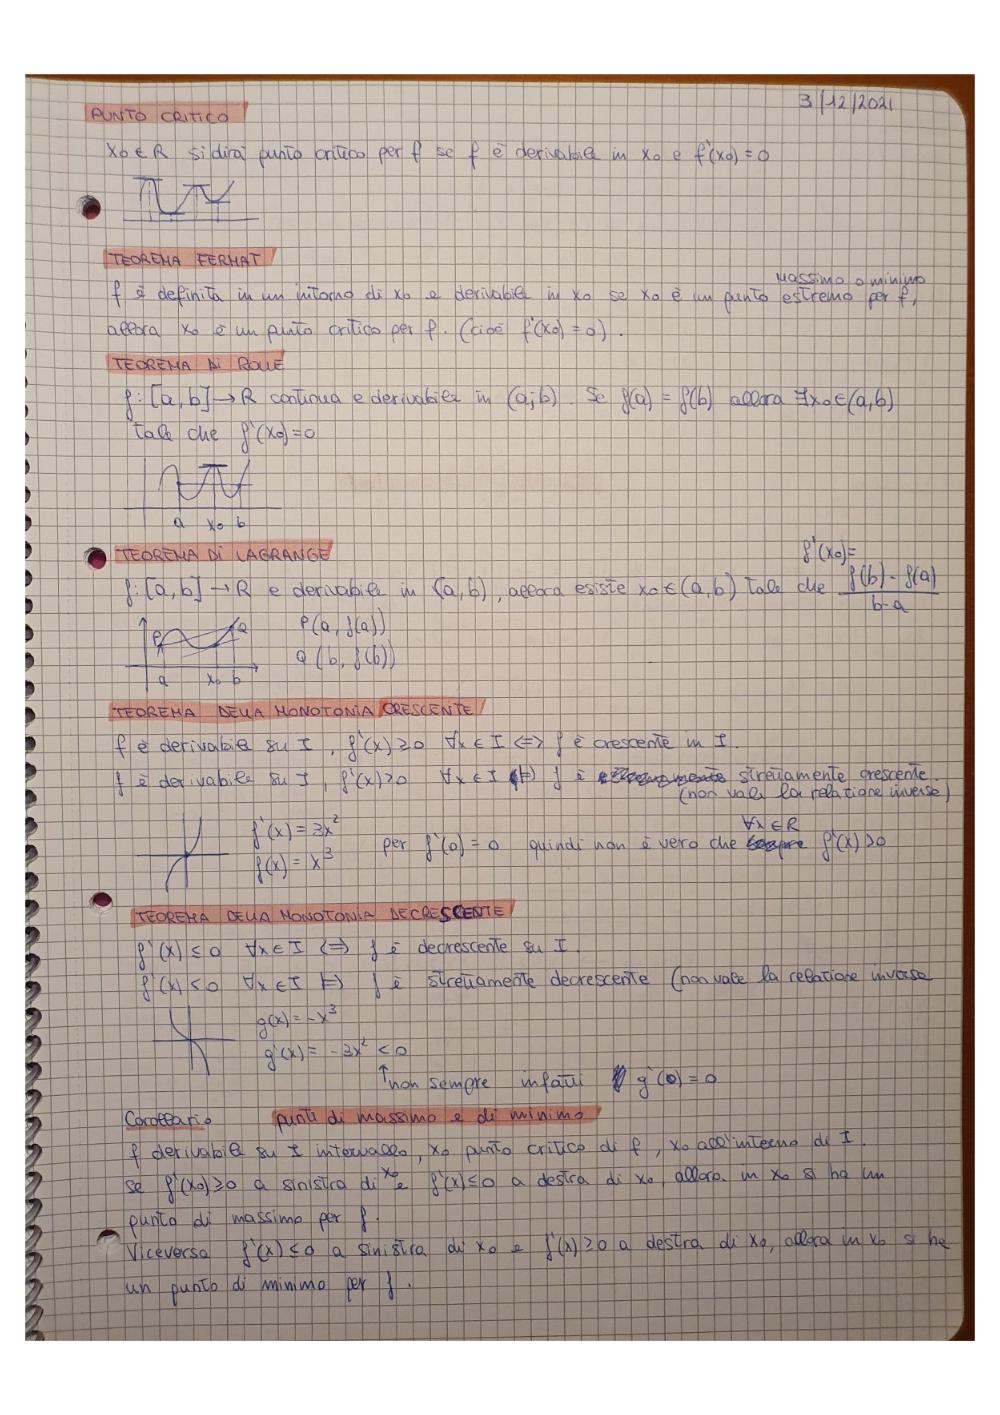 3/12/2021
PUNTO CRITICO
x0 ∈ R si dirà punto critico per f se f è derivabile in x0 e f'(x0) = 0
TEOREMA FERMAT
massimo o minimo
f è definita in un intorno di x0 e derivabile in x0 se x0 è un punto estremo per f,
allora x0 è un punto critico per f. (cioè f'(x0) = 0).
TEOREMA DI ROLLE
f: [a, b] → R continua e derivabile in (a; b). Se f(a) = f(b) allora ∃x0 ∈ (a, b)
tale che f'(x0) = 0
a x0 b
TEOREMA DI LAGRANGE
f'(x0) =
f: [a, b] → R e derivabile in (a, b), allora esiste x0 ∈ (a, b) tale che f(b) - f(a)
b-a
P Q P(a, f(a))
Q (b, f(b))
a x0 b
TEOREMA DELLA MONOTONIA CRESCENTE
f è derivabile su I, f'(x) ≥ 0 ∀x ∈ I <=> f è crescente in I.
f è derivabile su I, f'(x) > 0 ∀x ∈ I => f è strettamente crescente.
(non vale la relazione inversa)
f'(x) = 3x²
∀x ∈ R
per f'(0) = 0 quindi non è vero che sempre f'(x) > 0
f(x) = x³
TEOREMA DELLA MONOTONIA DECRESCENTE
f'(x) ≤ 0 ∀x ∈ I <=> f è decrescente su I.
f'(x) < 0 ∀x ∈ I => f è strettamente decrescente (non vale la relazione inversa
g(x) = -x³
g'(x) = -3x² < 0
↑ non sempre infatti g'(0) = 0
Corollario punti di massimo e di minimo
f derivabile su I intervallo, x0 punto critico di f, x0 all'interno di I.
se f'(x0) ≥ 0 a sinistra di x0 e f'(x) ≤ 0 a destra di x0, allora in x0 si ha un
punto di massimo per f.
Viceversa f'(x) ≤ 0 a sinistra di x0 e f'(x) ≥ 0 a destra di x0, allora in x0 si ha
un punto di minimo per f.